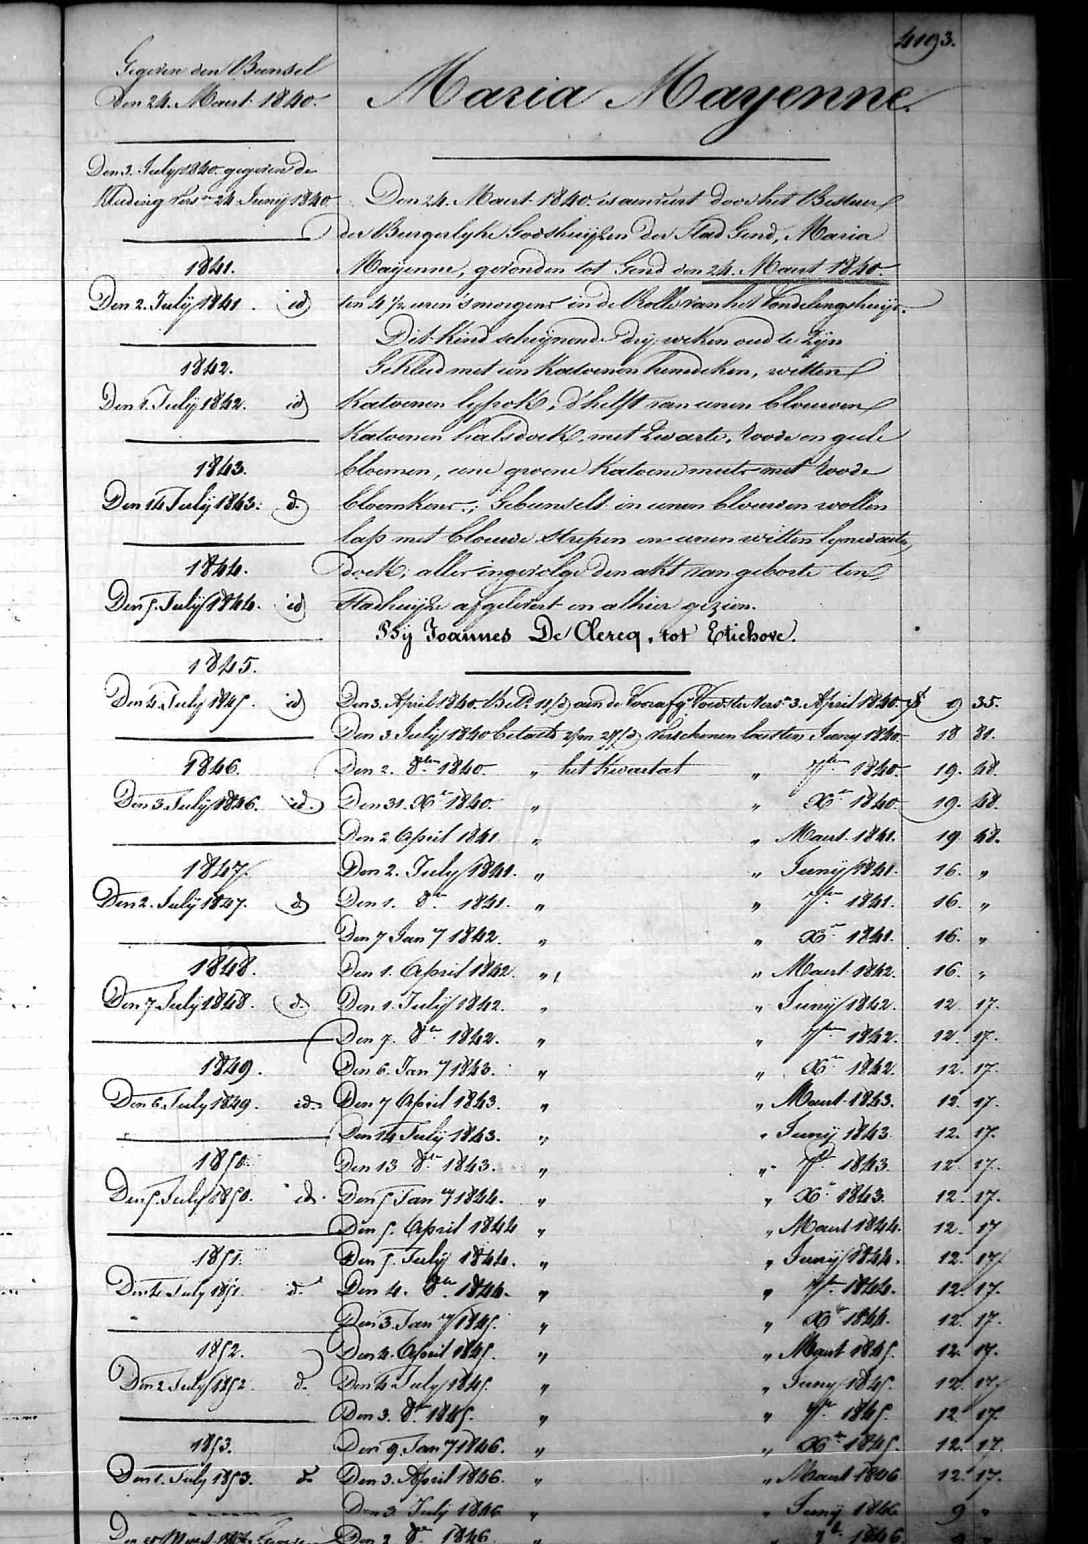 4193.
Gegeven den Bunsel
Den 24. Maert 1840.
Maria Mayenne.
Den 3. July 1840. gegeven de
Kleeding vers. 24 Junij 1840
1841.
Den 2. Julij 1841. id
1842.
Den 1. Julij 1842. id
1843.
Den 14 Julij 1843. d.
1844.
Den 5. Julij 1844. id
1845.
Den 4. July 1845. id
1846.
Den 3. July 1846. id.
1847.
Den 2. Julij 1847. d.
1848.
Den 7. Julij 1848. d.
1849.
Den 6. July 1849. id.
1850.
Den 5. July 1850. id.
1851.
Den 4. July 1851. d.
1852.
Den 2 July 1852. d.
1853.
Den 1. July 1853. d.
Den 24. Maert 1840. is aenveird door het Bestuer
der Burgerlyke Godshuijzen der Stad Gend, Maria
Mayenne, gevonden tot Gend den 24. Maert 1840.
ten 4 1/2 uren s'morgens in de Rolle van het Vondelingshuijs.
Dit Kind schijnende drij weken oud te zijn
Gekleed met een Katoenen hemdeken, witten
Katoenen lyfrok, d'helft van eenen blouwen
Katoenen halsdoek met zwarte, roode en geele
bloemen, eene groene Katoene muts met roode
bloemkens; Gebunselt in eenen blouwen wollen
lap met blouwe strepen en eenen witten lynwaeten
doek, alles ingevolge den akt van geboorte ten
Stadhuijze afgelevert en alhier gezien.
Bij Joannes De Clercq, tot Etichove.
Den 3. April 1840. aan de Voedster vers. 3. April 1840. 9 35.
Den 3 July 1840 betaelt verschenen Juny 1840 18 81.
Den 2. 8ber 1840. " het Kwartael " 7ber 1840. 19. 48.
Den 31. Xr 1840. " " Xr 1840. 19. 48.
Den 2 April 1841. " " Maert 1841. 19 48.
Den 2. July 1841. " " Junij 1841. 16. "
Den 1. 8ber 1841. " " 7ber 1841. 16. "
Den 7 Jan 7 1842. " " Xr 1841. 16. "
Den 1. April 1842. " " Maert 1842. 16. "
Den 1. July 1842. " " Junij 1842. 12. 17.
Den 7. 8br 1842. " " 7br 1842. 12. 17.
Den 6. Jan 7 1843. " " Xr 1842. 12. 17.
Den 7 April 1843. " " Maert 1843. 12. 17.
Den 14 Julij 1843. " " Junij 1843 12. 17.
Den 13 8br 1843. " " 7br 1843 12. 17.
Den 5 Jan 7 1844. " " Xr 1843. 12. 17.
Den 5. April 1844 " " Maert 1844. 12. 17
Den 5. Julij 1844. " " Junij 1844. 12. 17.
Den 4. 8ber 1844. " " 7br 1844. 12. 17.
Den 3. Jan 7 1845. " " Xr 1844. 12. 17.
Den 4. April 1845. " " Maert 1845. 12. 17.
Den 4 July 1845. " " Juny 1845. 12. 17.
Den 3. 8br 1845. " " 7br 1845. 12. 17.
Den 9. Jan 7 1846. " " Xr 1845. 12. 17.
Den 3. April 1846. " " Maert 1846 12. 17.
Den 3 July 1846 " " Junij 1846 9 "
Den 2 8br 1846. " " 7br 1846. 9 "